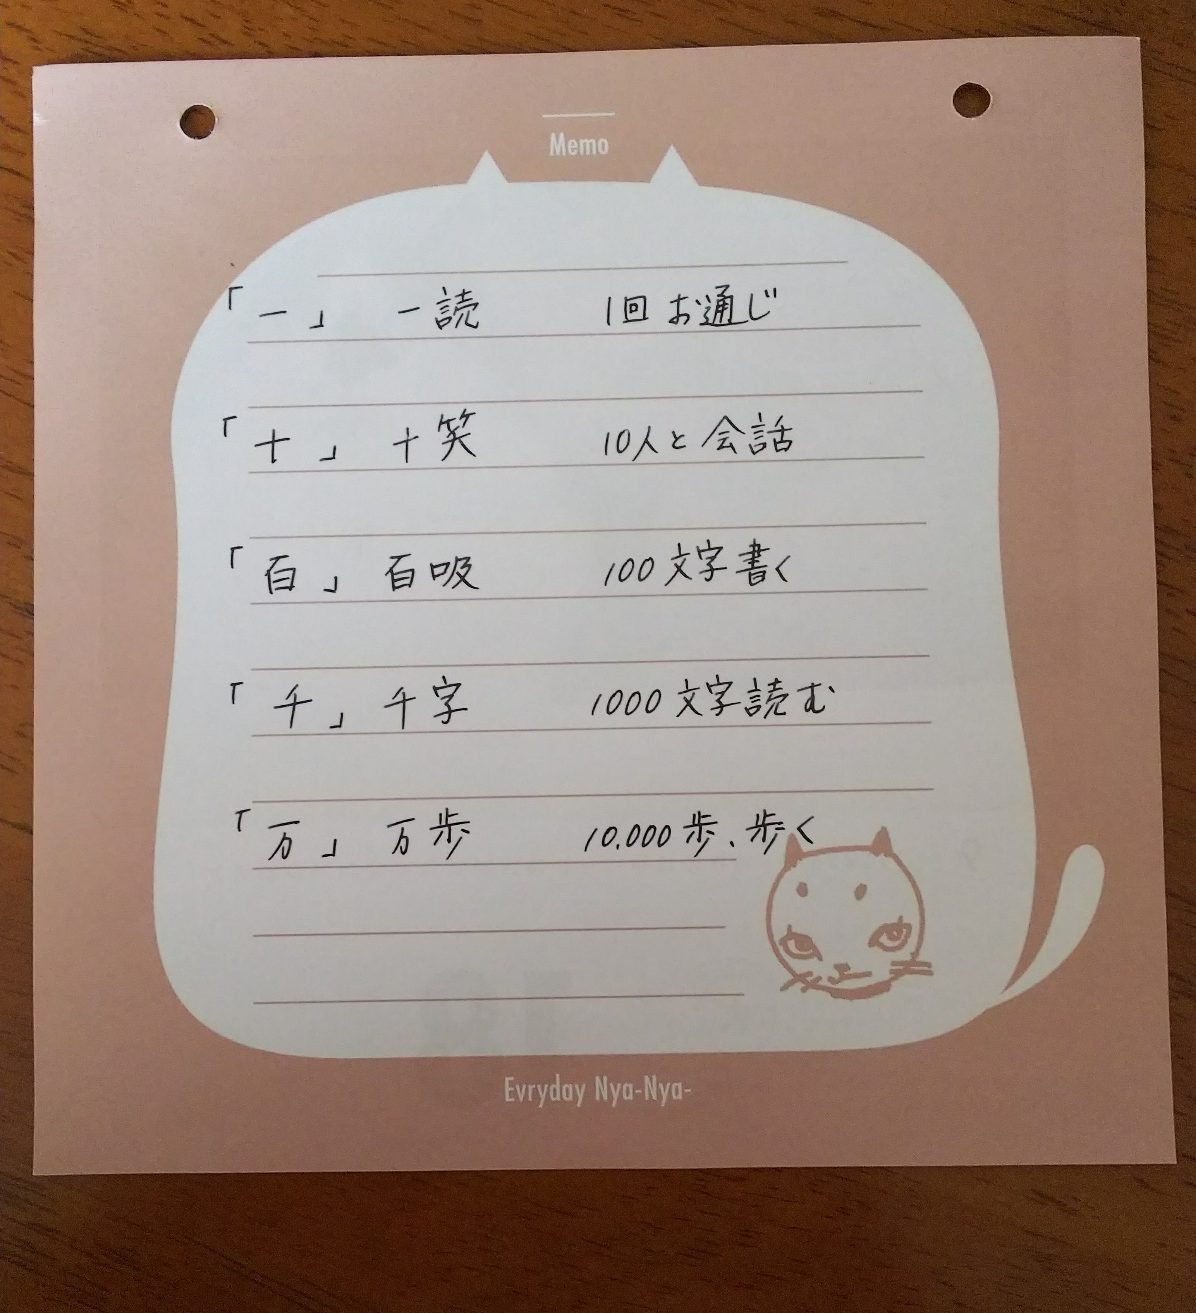 Memo
「一」 一読 1回 お通じ
「十」 十笑 10人と会話
「百」 百吸 100文字書く
「千」 千字 1000文字読む
「万」 万歩 10.000歩、歩く
Evryday Nya-Nya-